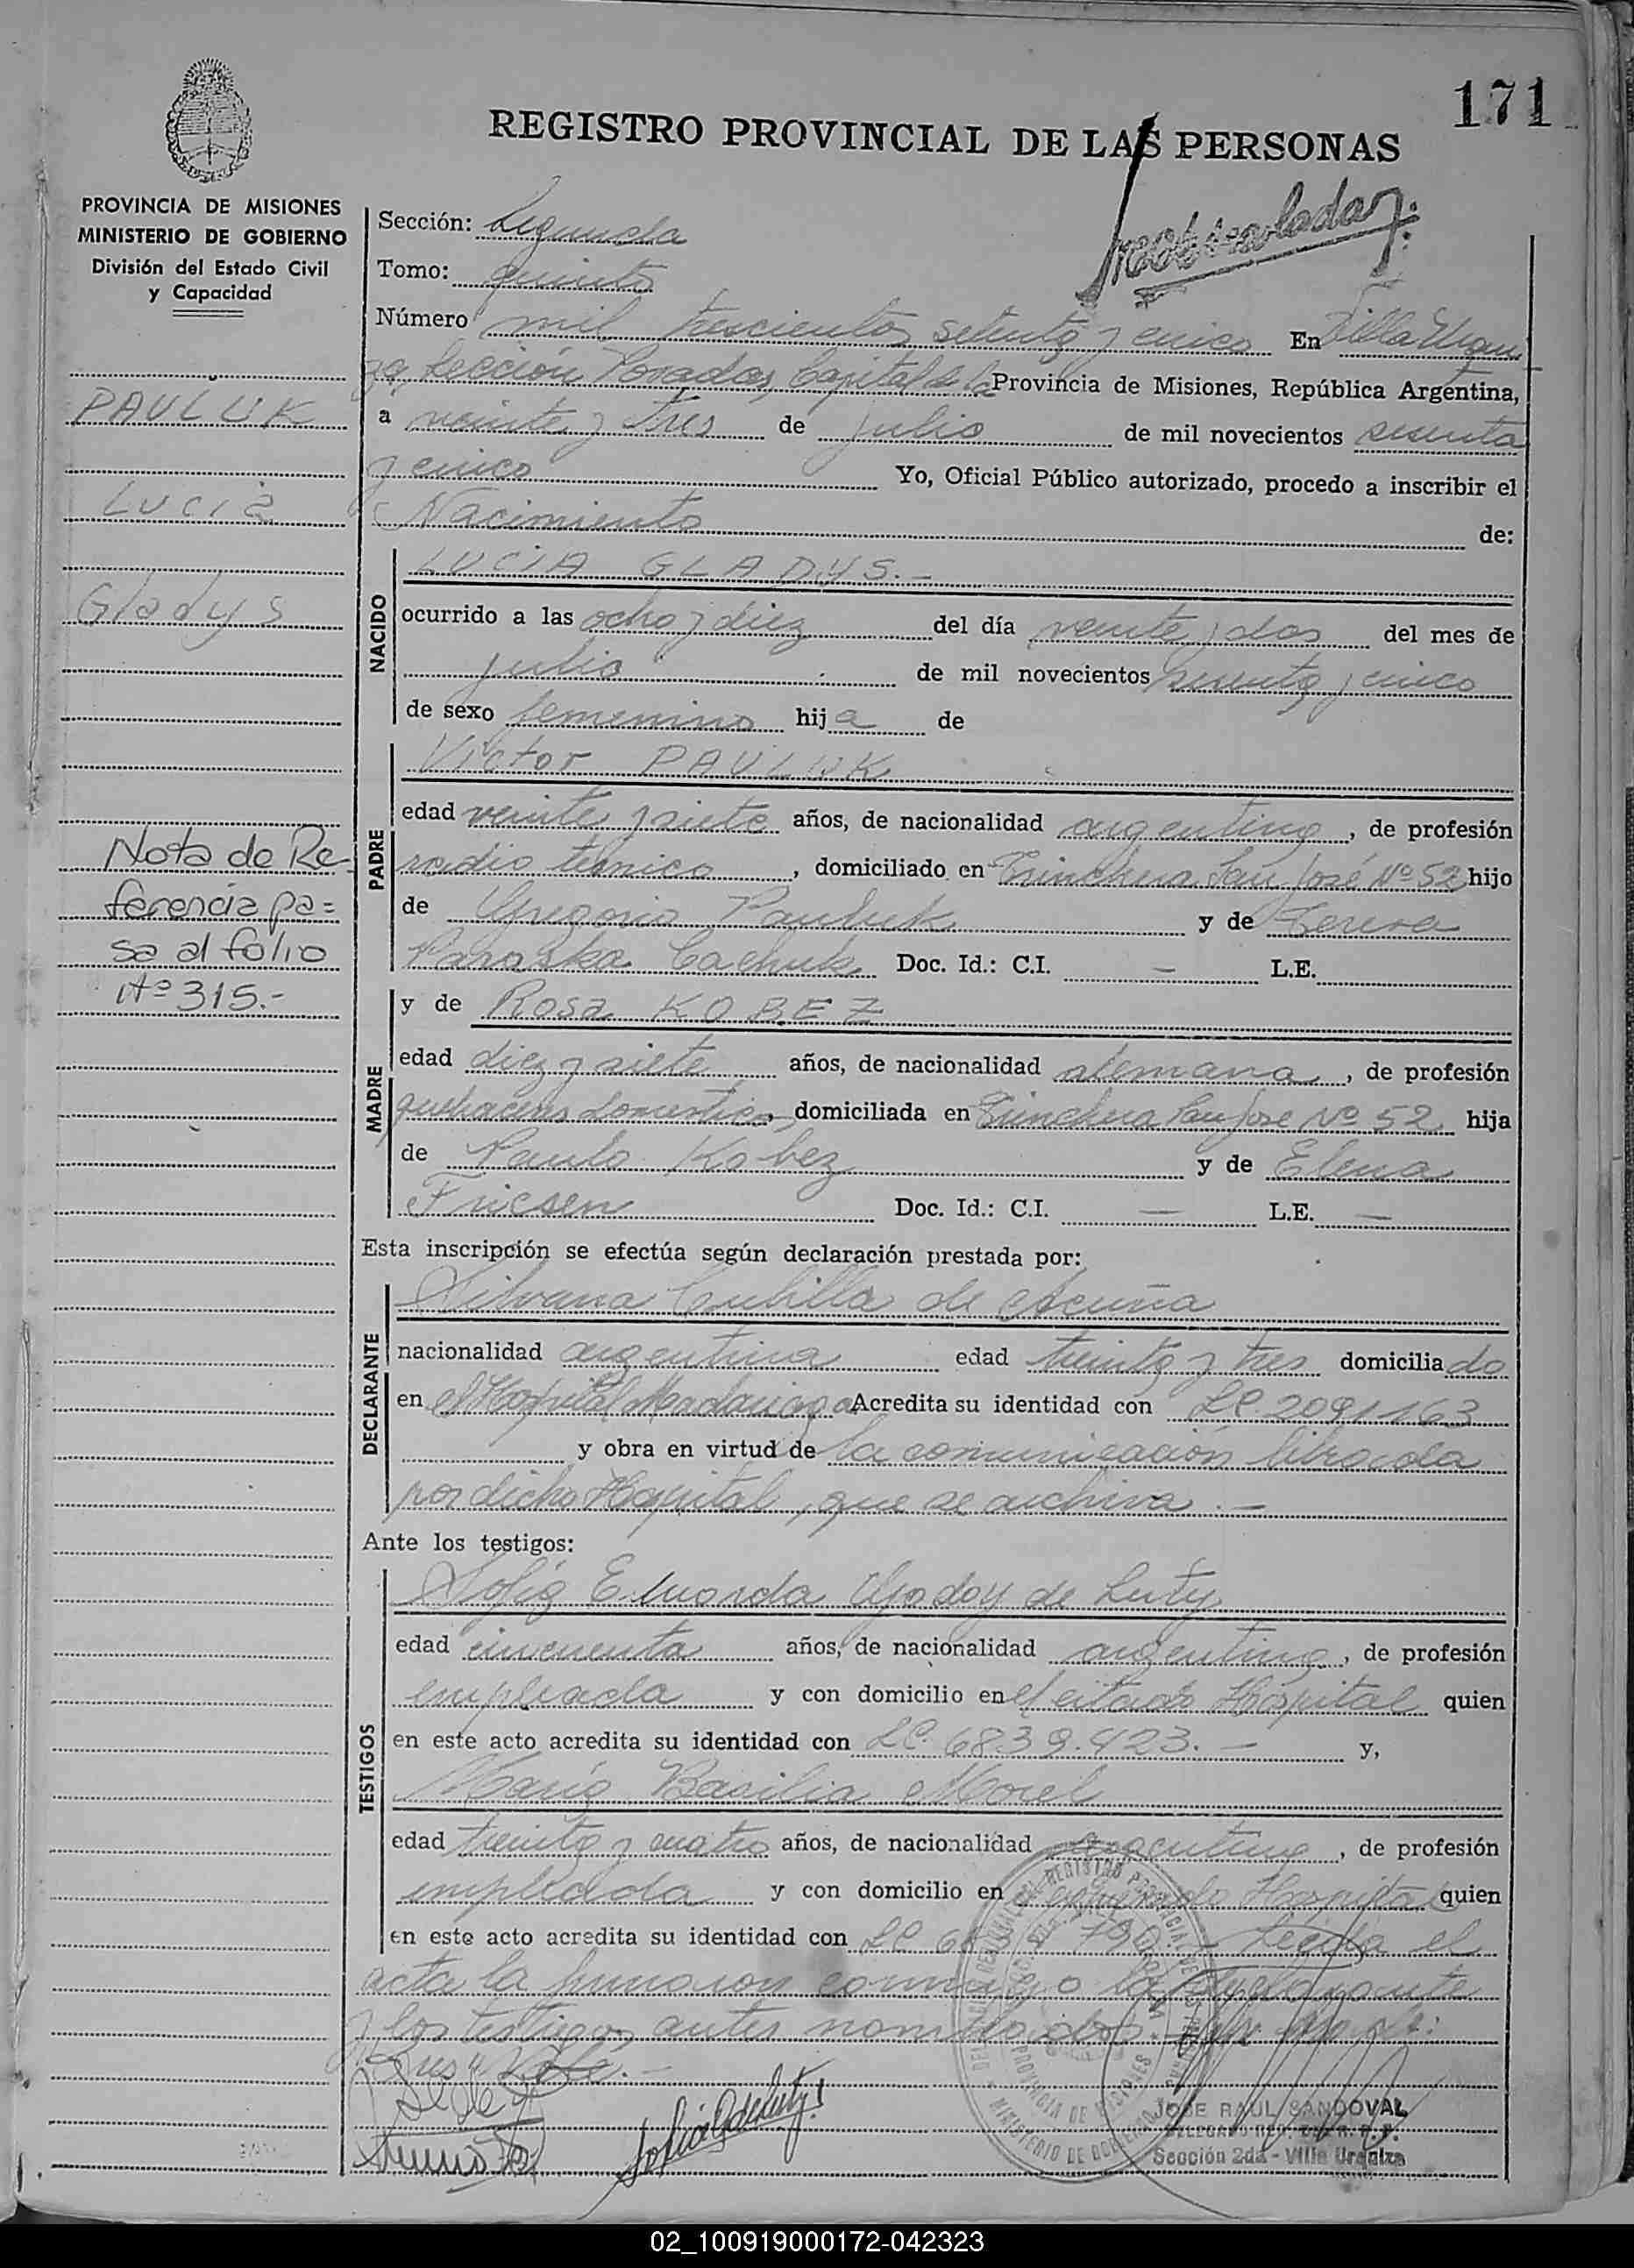 171
REGISTRO PROVINCIAL DE LAS PERSONAS
PROVINCIA DE MISIONES
MINISTERIO DE GOBIERNO
División del Estado Civil
y Capacidad
PAULUK
Lucia
Gladys
Nota de Re-
ferencia pa=
sa al folio
Nº 315.-
Sección: Segunda
Tomo: quinto
Número mil trescientos setenta y cinco En Villa Urqui
za, Sección Posadas, Capital de la Provincia de Misiones, República Argentina,
a veinte y tres de julio de mil novecientos sesenta
y cinco Yo, Oficial Público autorizado, procedo a inscribir el
Nacimiento de:
NACIDO
LUCIA GLADYS.-
ocurrido a las ocho y diez del día veinte y dos del mes de
julio de mil novecientos sesenta y cinco
de sexo femenino hija de
PADRE
Victor PAULUK
edad veinte y siete años, de nacionalidad argentina, de profesión
radio técnico, domiciliado en Trinchera San José Nº 52 hijo
de Gregorio Pauluk y de Teresa
Paraska Cachuk Doc. Id.: C.I. — L.E.
MADRE
y de Rosa KOBEZ
edad diez y siete años, de nacionalidad alemana, de profesión
quehaceres domésticos, domiciliada en Trinchera San Jose Nº 52 hija
de Paulo Kobez y de Elena
Fricsen Doc. Id.: C.I. — L.E. —
Esta inscripción se efectúa según declaración prestada por:
DECLARANTE
Silvana Cubilla de Acuña
nacionalidad argentina edad treinta y tres domiciliado
en el Hospital Madariaga Acredita su identidad con LC 2091163
y obra en virtud de la comunicación librada
por dicho Hospital, que se archiva.—
Ante los testigos:
TESTIGOS
Sofía Eduarda Godoy de Luty
edad cincuenta años, de nacionalidad argentina, de profesión
empleada y con domicilio en el citado Hospital quien
en este acto acredita su identidad con LC. 6839.423.— y,
María Basilia Morel
edad treinta y cuatro años, de nacionalidad argentina, de profesión
empleada y con domicilio en Hospital quien
en este acto acredita su identidad con LC Leída el
acta la firmaron conmigo la declarante
y los testigos antes nombrados
JOSE RAUL SANDOVAL
Sección 2da - Villa Urquiza
02_100919000172-042323